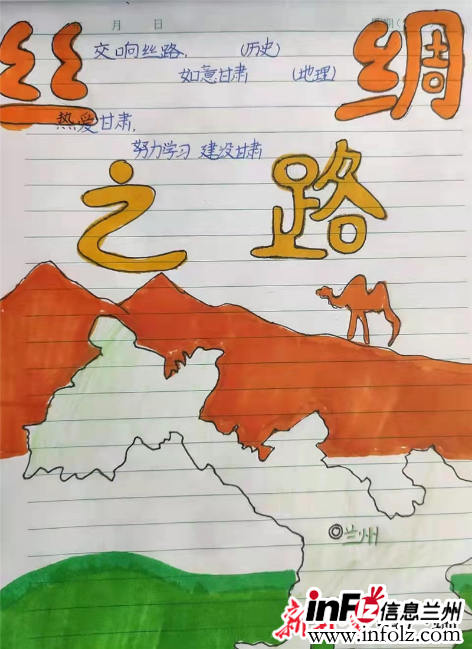 月 日
丝 绸
交响丝路, (历史)
如意甘肃 (地理)
热爱甘肃,
努力学习 建设甘肃
之 路
兰州
infLZ信息兰州
www.infolz.com